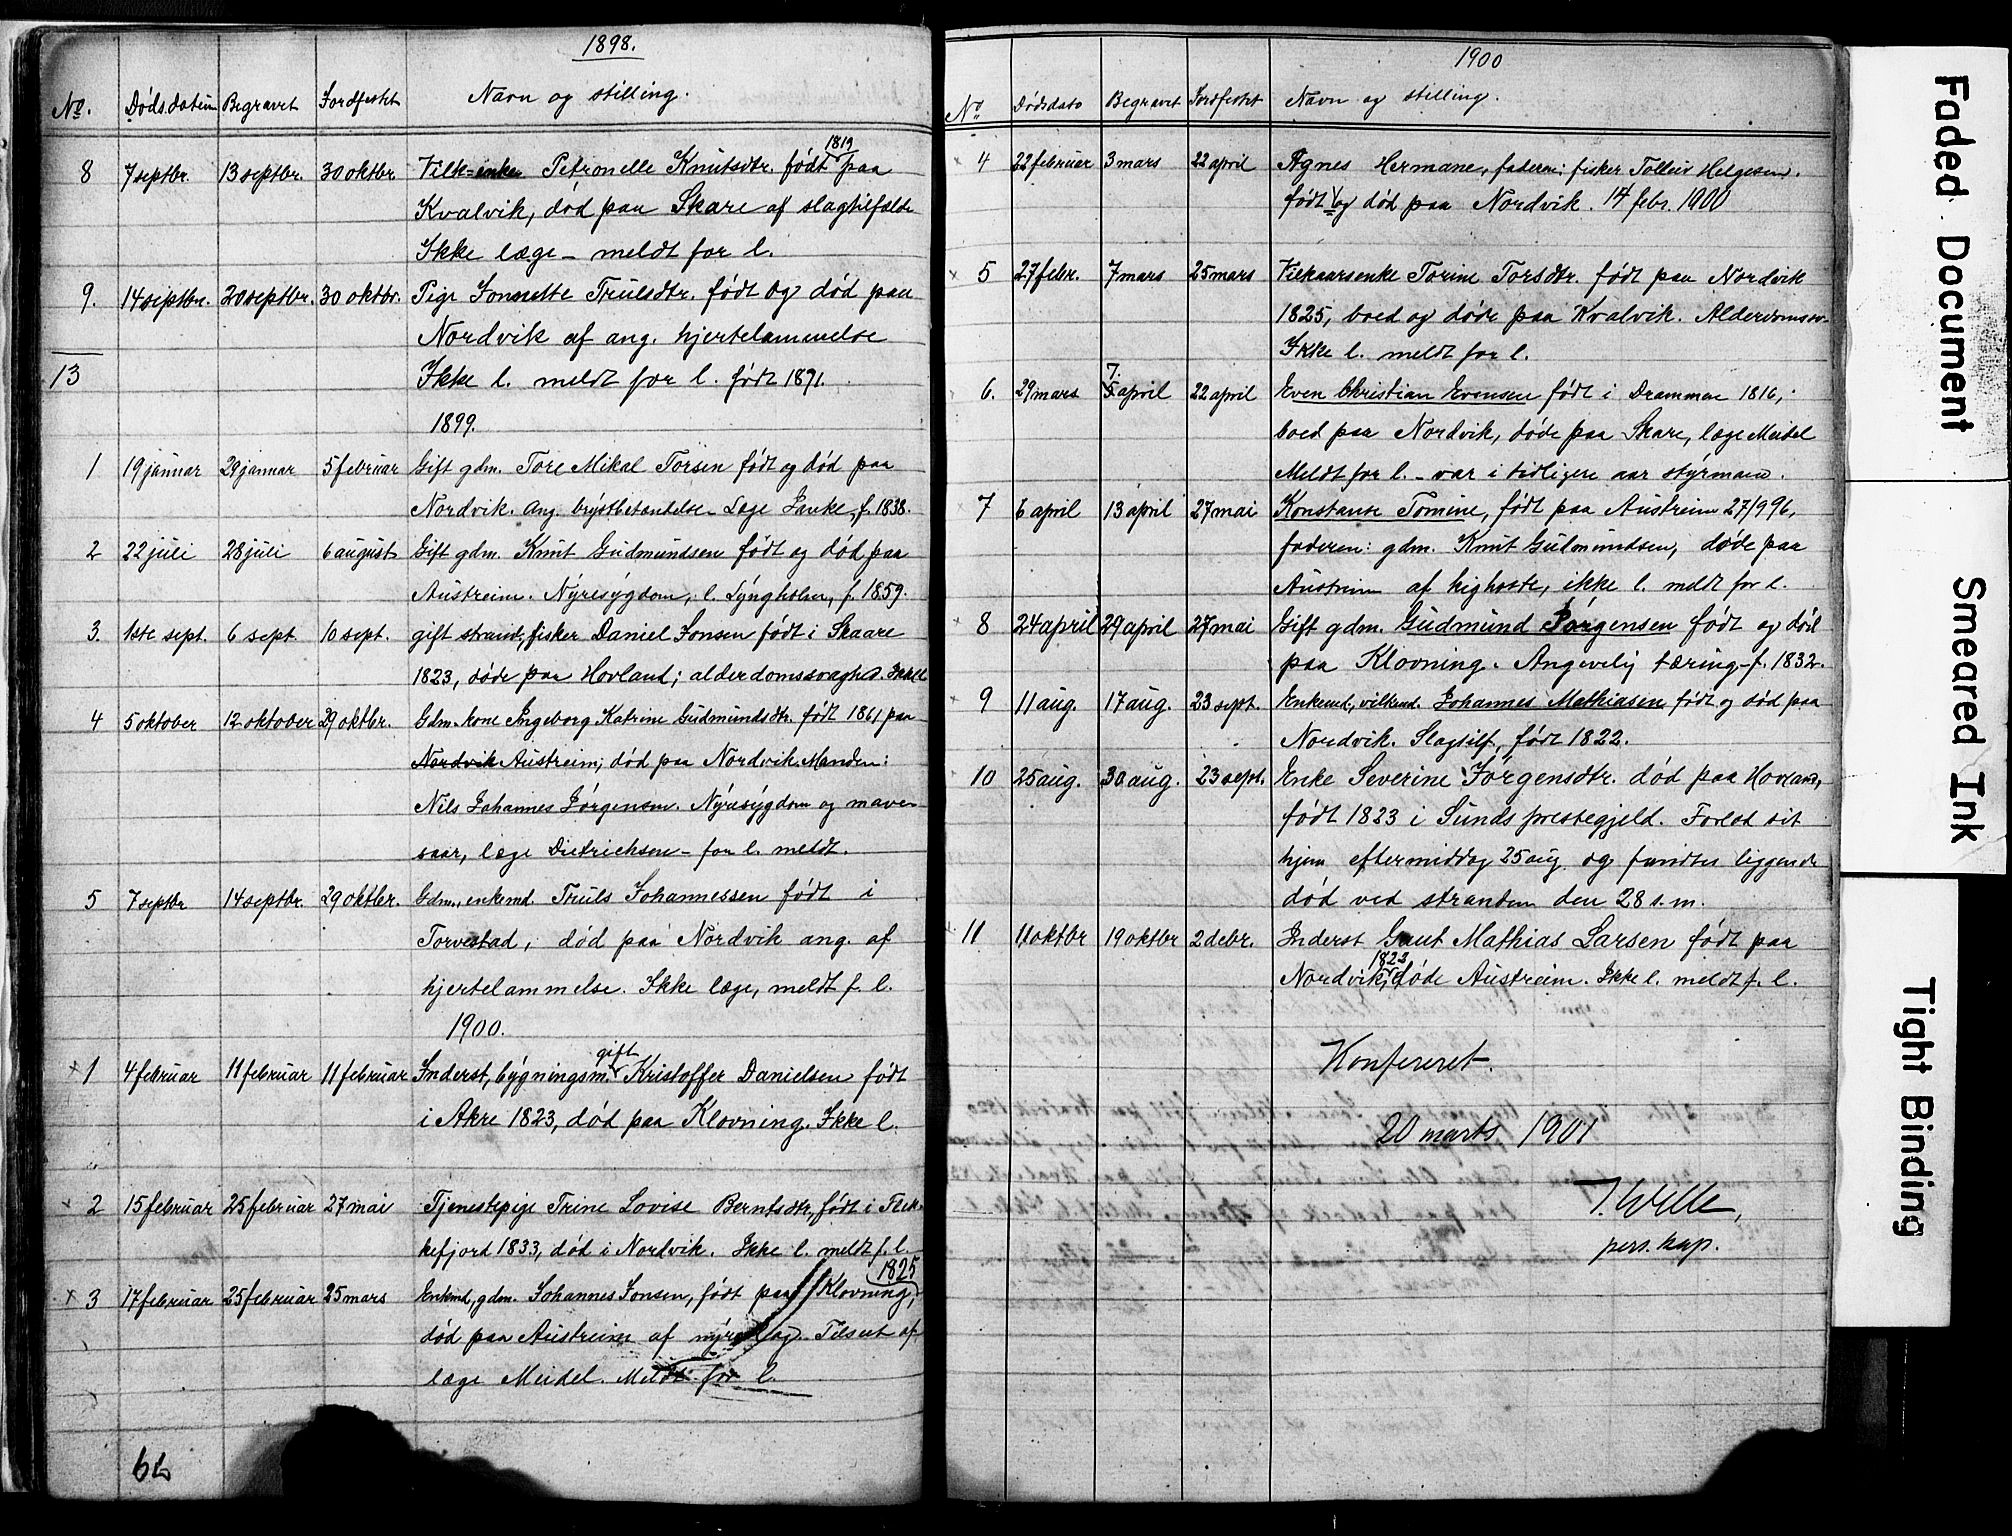 1898.
No. Dødsdatum Begravet Jordfestet Navn og stilling.
8 7 septbr. 13 septbr. 30 oktbr Vilk=enke Petronelle Knutsdtr. født 1819 paa
Kvalvik, død paa Skare af slagtilfælde
Ikke læge - meldt for l.
9. 14 septbr. 20 septbr. 30 oktbr. Pige Jonnette Trulsdtr. født og død paa
Nordvik af ang. hjertelammelse
13 Ikke l. meldt for l. født 1891.
1899.
1 19 januar 29 januar 5 februar Gift gdm. Tore Mikal Torsen født og død paa
Nordvik. Ang. brystbetændelse - Læge Janke, f. 1838.
2 22 juli 28 juli 6 august Gift gdm. Knut Gudmundsen født og død paa
Austreim. Nyresygdom, l. Lyngholm, f. 1859.
3. 1ste sept. 6 sept. 10 sept. gift strand, fisker Daniel Jonsen født i Skaare
1823, døde paa Hovland; alderdomssvaghed.
4 5 oktober 12 oktober 29 oktbr. Gdm. kone Ingeborg Katrine Gudmundsdtr. født 1861 paa
Nordvik Austreim; død paa Nordvik. Manden:
Nils Johannes Jørgensen. Nyresygdom og mave-
saar, læge Dietrichsen - for l. meldt.
5 7 septbr 14 septbr. 29 oktbr. Gdm., enkemd. Truls Johannessen født i
Torvestad, død paa Nordvik ang. af
hjertelammelse. Ikke læge, meldt f. l.
1900.
x 1 4 februar 11 februar 11 februar Inderst, bygningsm. gift Kristoffer Danielsen født
i Akre 1823, død paa Klovning. Ikke l.
x 2 15 februar 25 februar 27 mai Tjenestepige Trine Lovise Berntsdtr, født i Flek-
kefjord 1833, død i Nordvik. Ikke l. meldt f. l.
x 3 17 februar 25 februar 25 mars Enkmd, gdm. Johannes Jonsen, født paa Klovning, 1825
død paa Austreim af Tilseet af
læge Meidel. Meldt for l.
62
1900
No Dødsdato Begravet Jordfestet Navn og stilling.
x 4 22 februar 3 mars 22 april Agnes Hermane, faderen: fisker Tolleiv Helgesen.
født og død paa Nordvik. 14 febr. 1900
x 5 27 febr. 7 mars 25 mars Vilkaarsenke Torine Torsdtr. født paa Nordvik
1825, boed og døde paa Kvalvik. Alderdomssv-
Ikke l. meldt for l.
6. 29 mars 7. 5 april 22 april Even Christian Evensen født i Drammen 1816,
boed paa Nordvik, døde paa Skare, læge Meidel
Meldt for l. - var i tidligere aar styrmann.
7 6 april 13 april 27 mai Konstanse Tomine, født paa Austreim 27/9 96,
faderen: gdm. Knut Gudmundsen, døde paa
Austreim af kighoste, ikke l. meldt for l.
x 8 24 april 29 april 27 mai Gift gdm. Gudmund Jørgensen født og død
paa Klovning. Angivelig tæring - f. 1832.
x 9 11 aug. 17 aug. 23 sept. Enkemd, vilkmd. Johannes Mathiasen født og død paa
Nordvik. Slagtilf., født 1822.
x 10 25 aug. 30 aug. 23 sept. Enke Severine Jørgensdtr. død paa Hovland,
født 1823 i Sunds prestegjeld. Forlod sit
hjem eftermiddag 25 aug. og fundtes liggende
død ved stranden den 28 s. m.
11 11 oktbr 19 oktbr 2 debr. Inderst Gaut Mathias Larsen født paa
Nordvik, 1823 døde Austreim. Ikke l. meldt f. l.
Konfereret.
20 marts 1901
J. Wille,
pers. kap.
Faded Document
Smeared Ink
Tight Binding